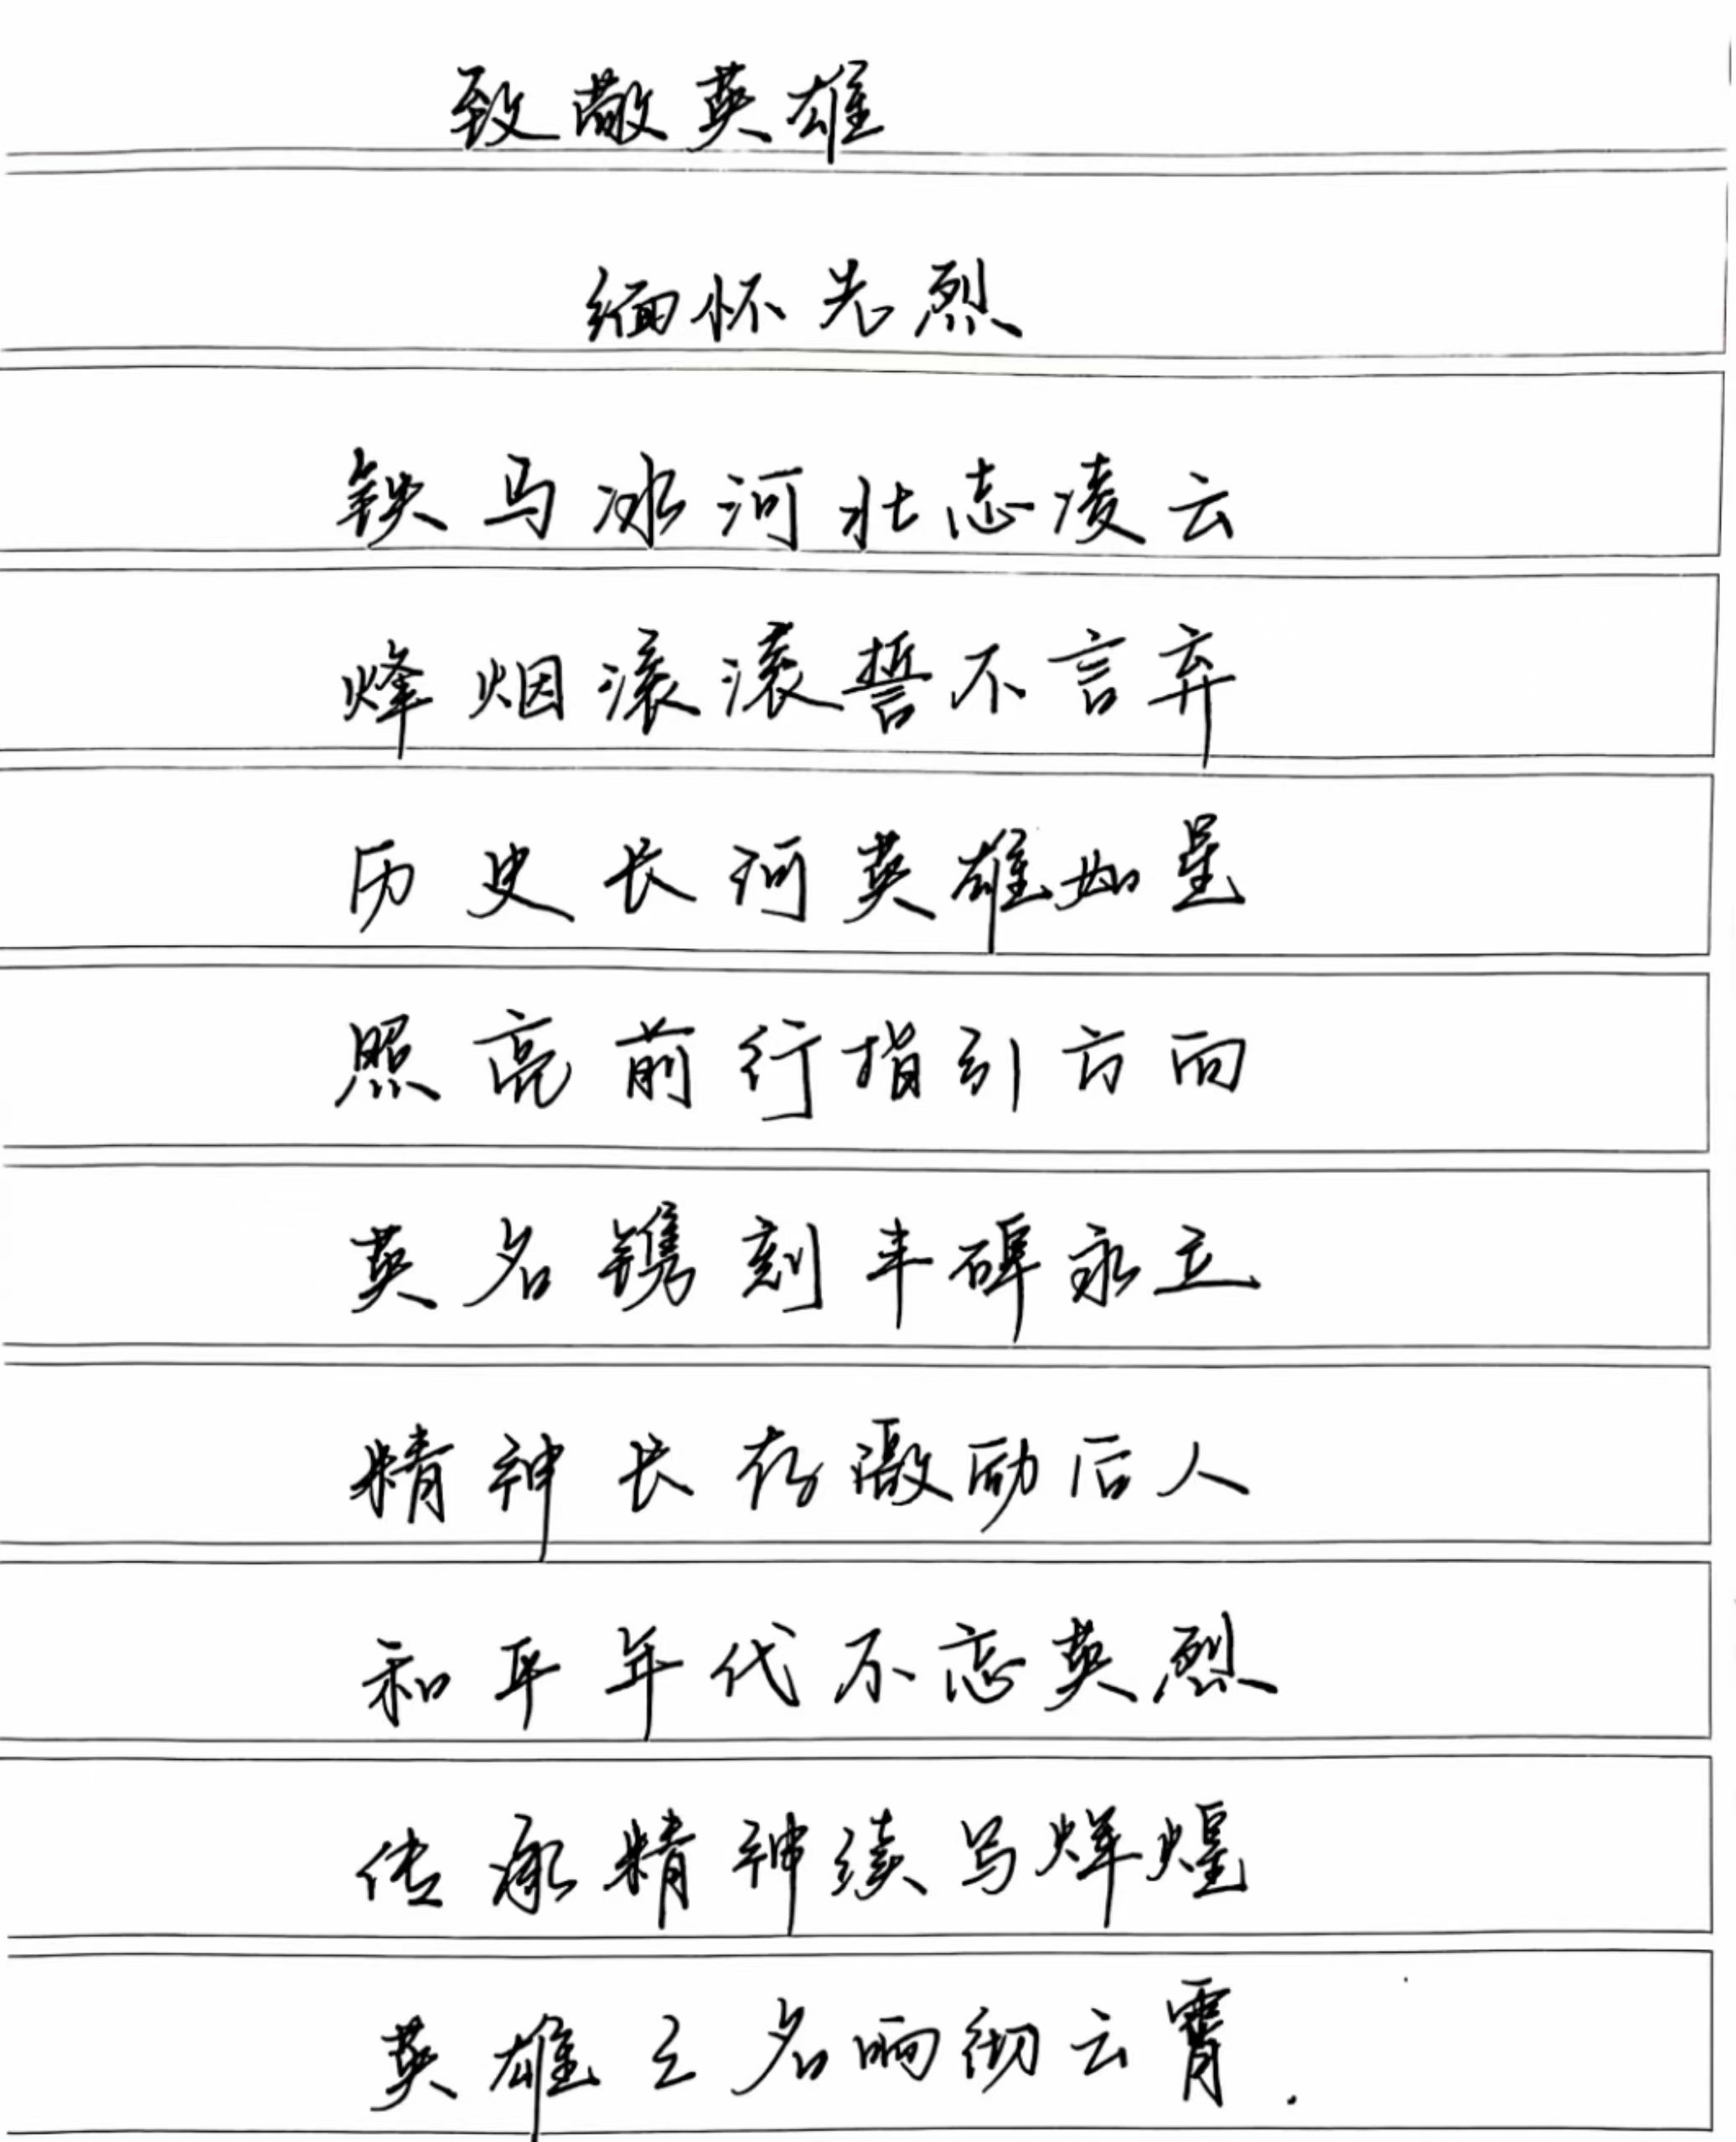 致敬英雄
缅怀先烈
铁马冰河壮志凌云
烽烟滚滚誓不言弃
历史长河英雄如星
照亮前行指引方向
英名镌刻丰碑永立
精神长存激励后人
和平年代不忘英烈
传承精神续写辉煌
英雄之名响彻云霄.